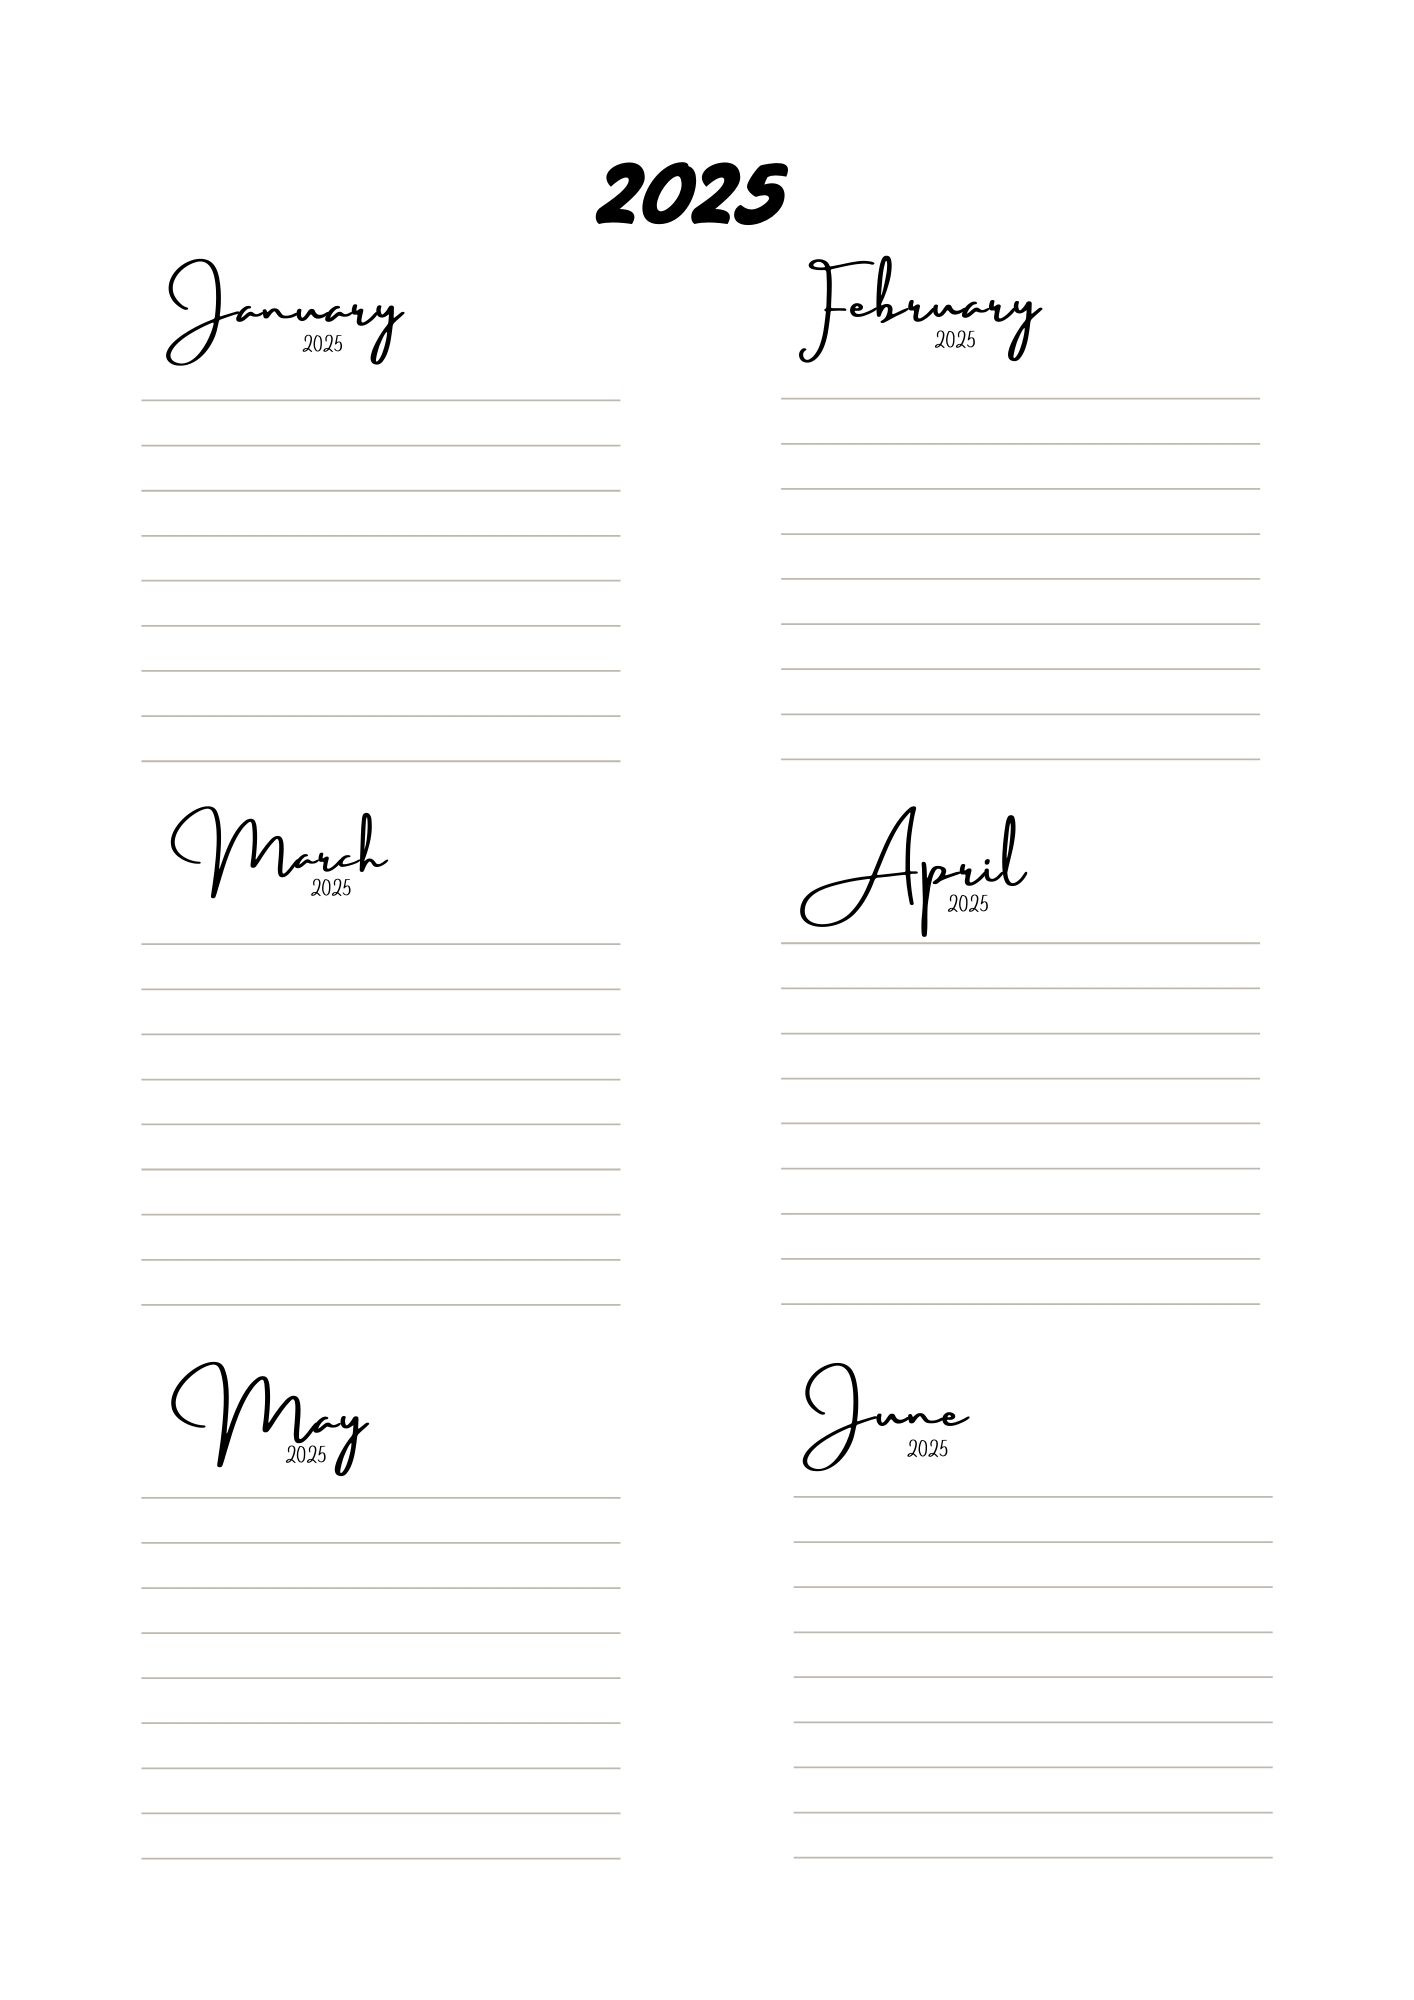 2025
January
2025
February
2025
March
2025
April
2025
May
2025
June
2025